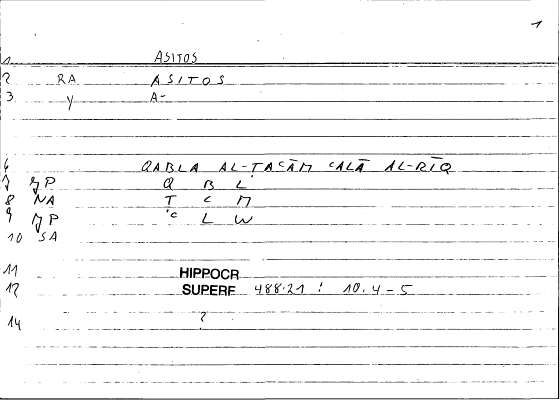 1
1 ASITOS
2 RA ASITOS
3 y A-
6 QABLA AL-TAʿĀM ʿALĀ AL-RĪQ
7 MP Q B L
8 NA T ʿ M
9 MP ʿ L W
10 SA
11 HIPPOCR
12 SUPERF 488.21 : 10.4-5
14 ?